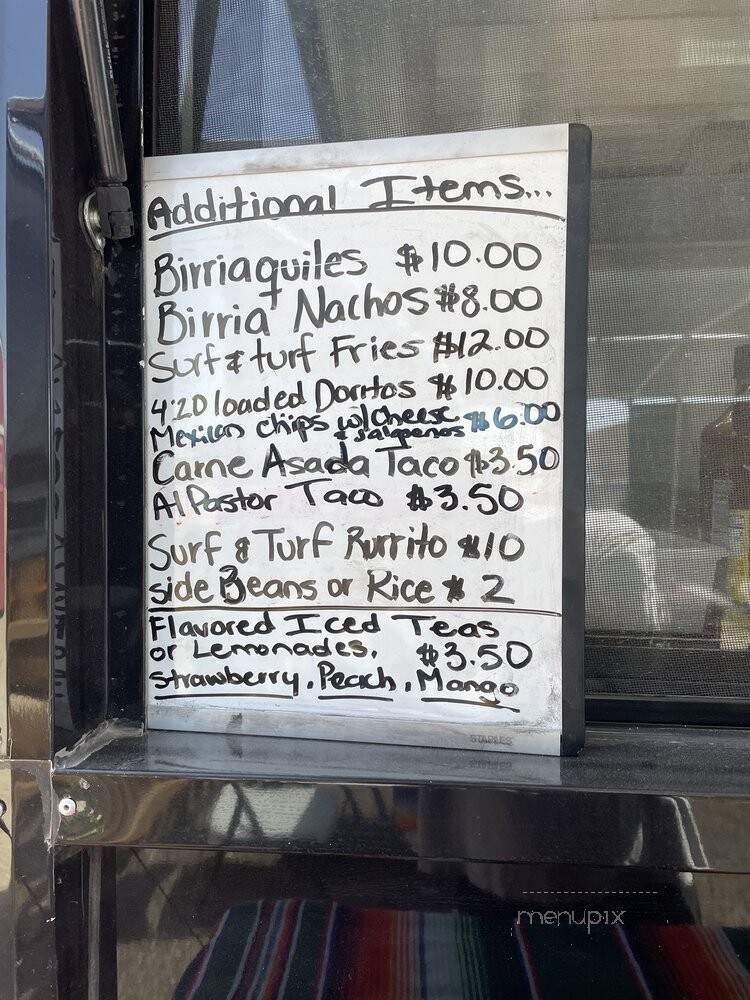 Additional Items...
Birriaquiles $10.00
Birria Nachos $8.00
Surf & turf Fries $12.00
4:20 loaded Doritos $10.00
Mexican chips w/Cheese $6.00
& Jalapenos
Carne Asada Taco $3.50
Al Pastor Taco $3.50
Surf & Turf Burrito $10
side Beans or Rice $2
Flavored Iced Teas
or Lemonades. $3.50
Strawberry, Peach, Mango
STAPLES
menupix